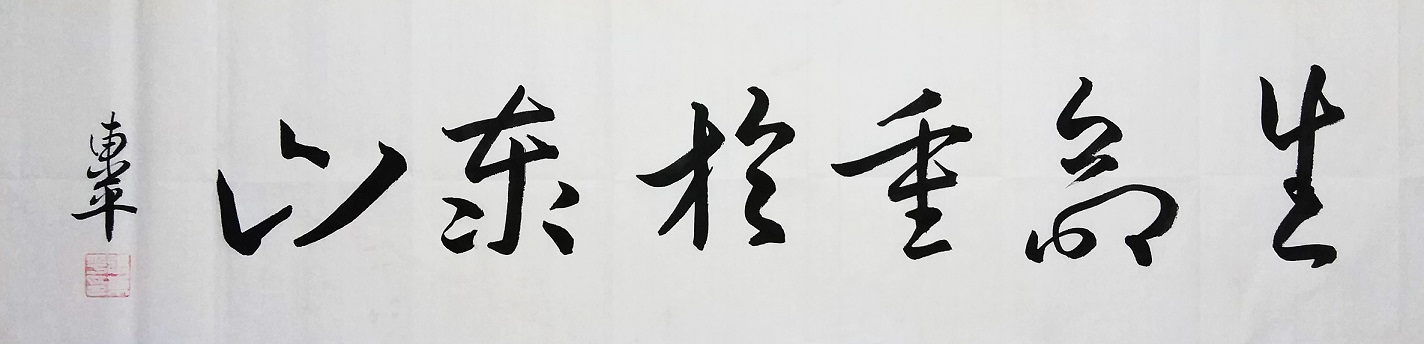 生命重於泰山
東平